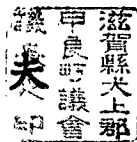 滋賀縣犬上郡
甲良町議會
議夫印